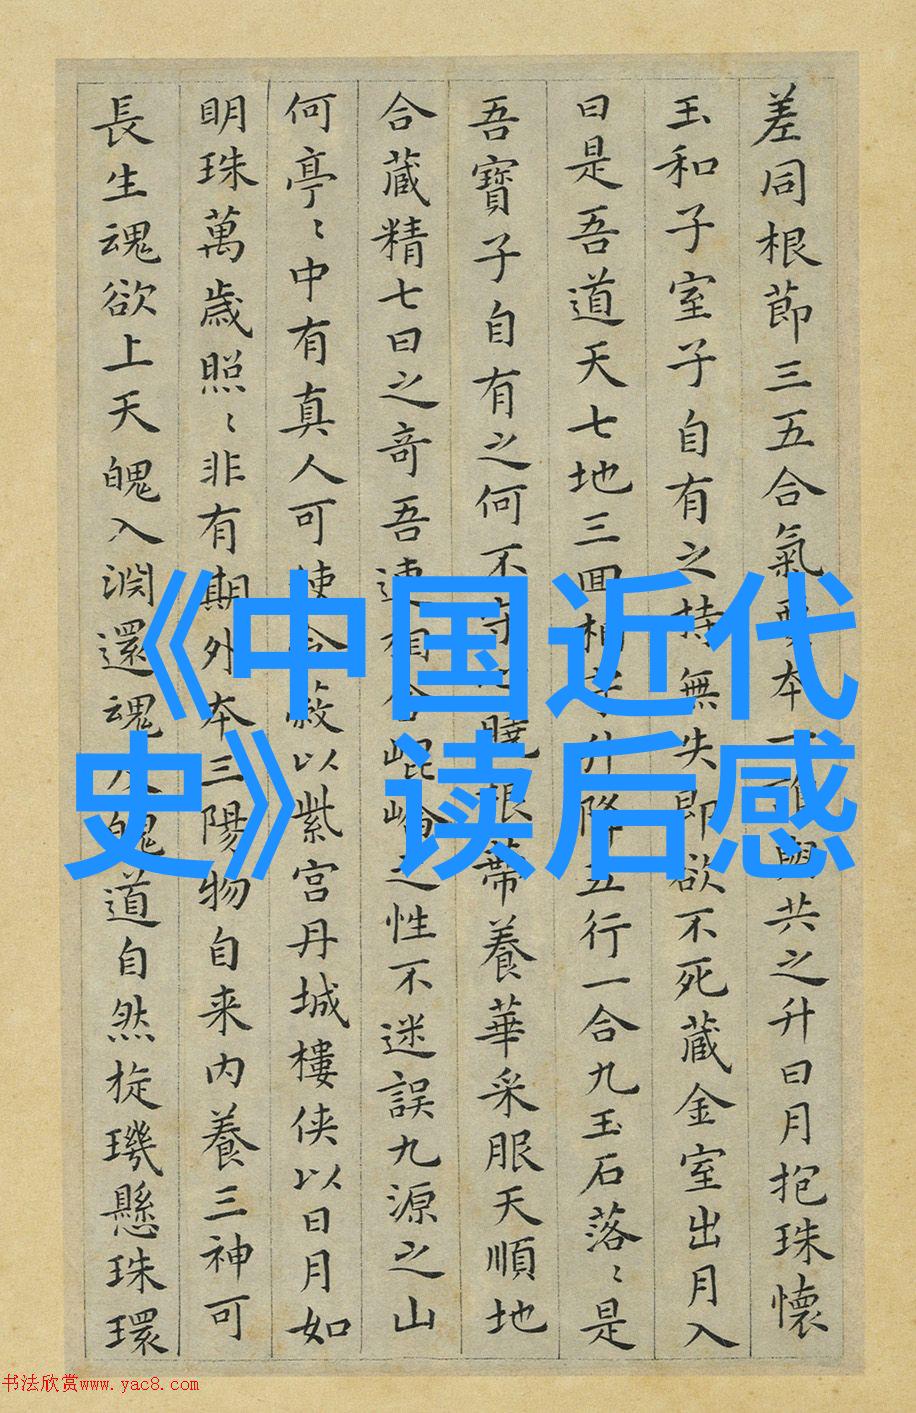 差同根節三五合氣要本一誰與共之升日月抱珠懷
玉和子室子自有之持無失即欲不死藏金室出月入
日是吾道天七地三回相守升降五行一合九玉石落〻是
吾寶子自有之何不守心曉根蒂養華采服天順地
合藏精七日之奇吾連相合崐崘之性不迷誤九源之山
何亭〻中有真人可使令蔽以紫宮丹城樓侠以日月如
明珠萬歲照〻非有期外本三陽物自来内養三神可
長生魂欲上天魄入淵還魂魄道自然旋璣懸珠環
《中国近代
史》读后感
书法欣赏www.yac8.com